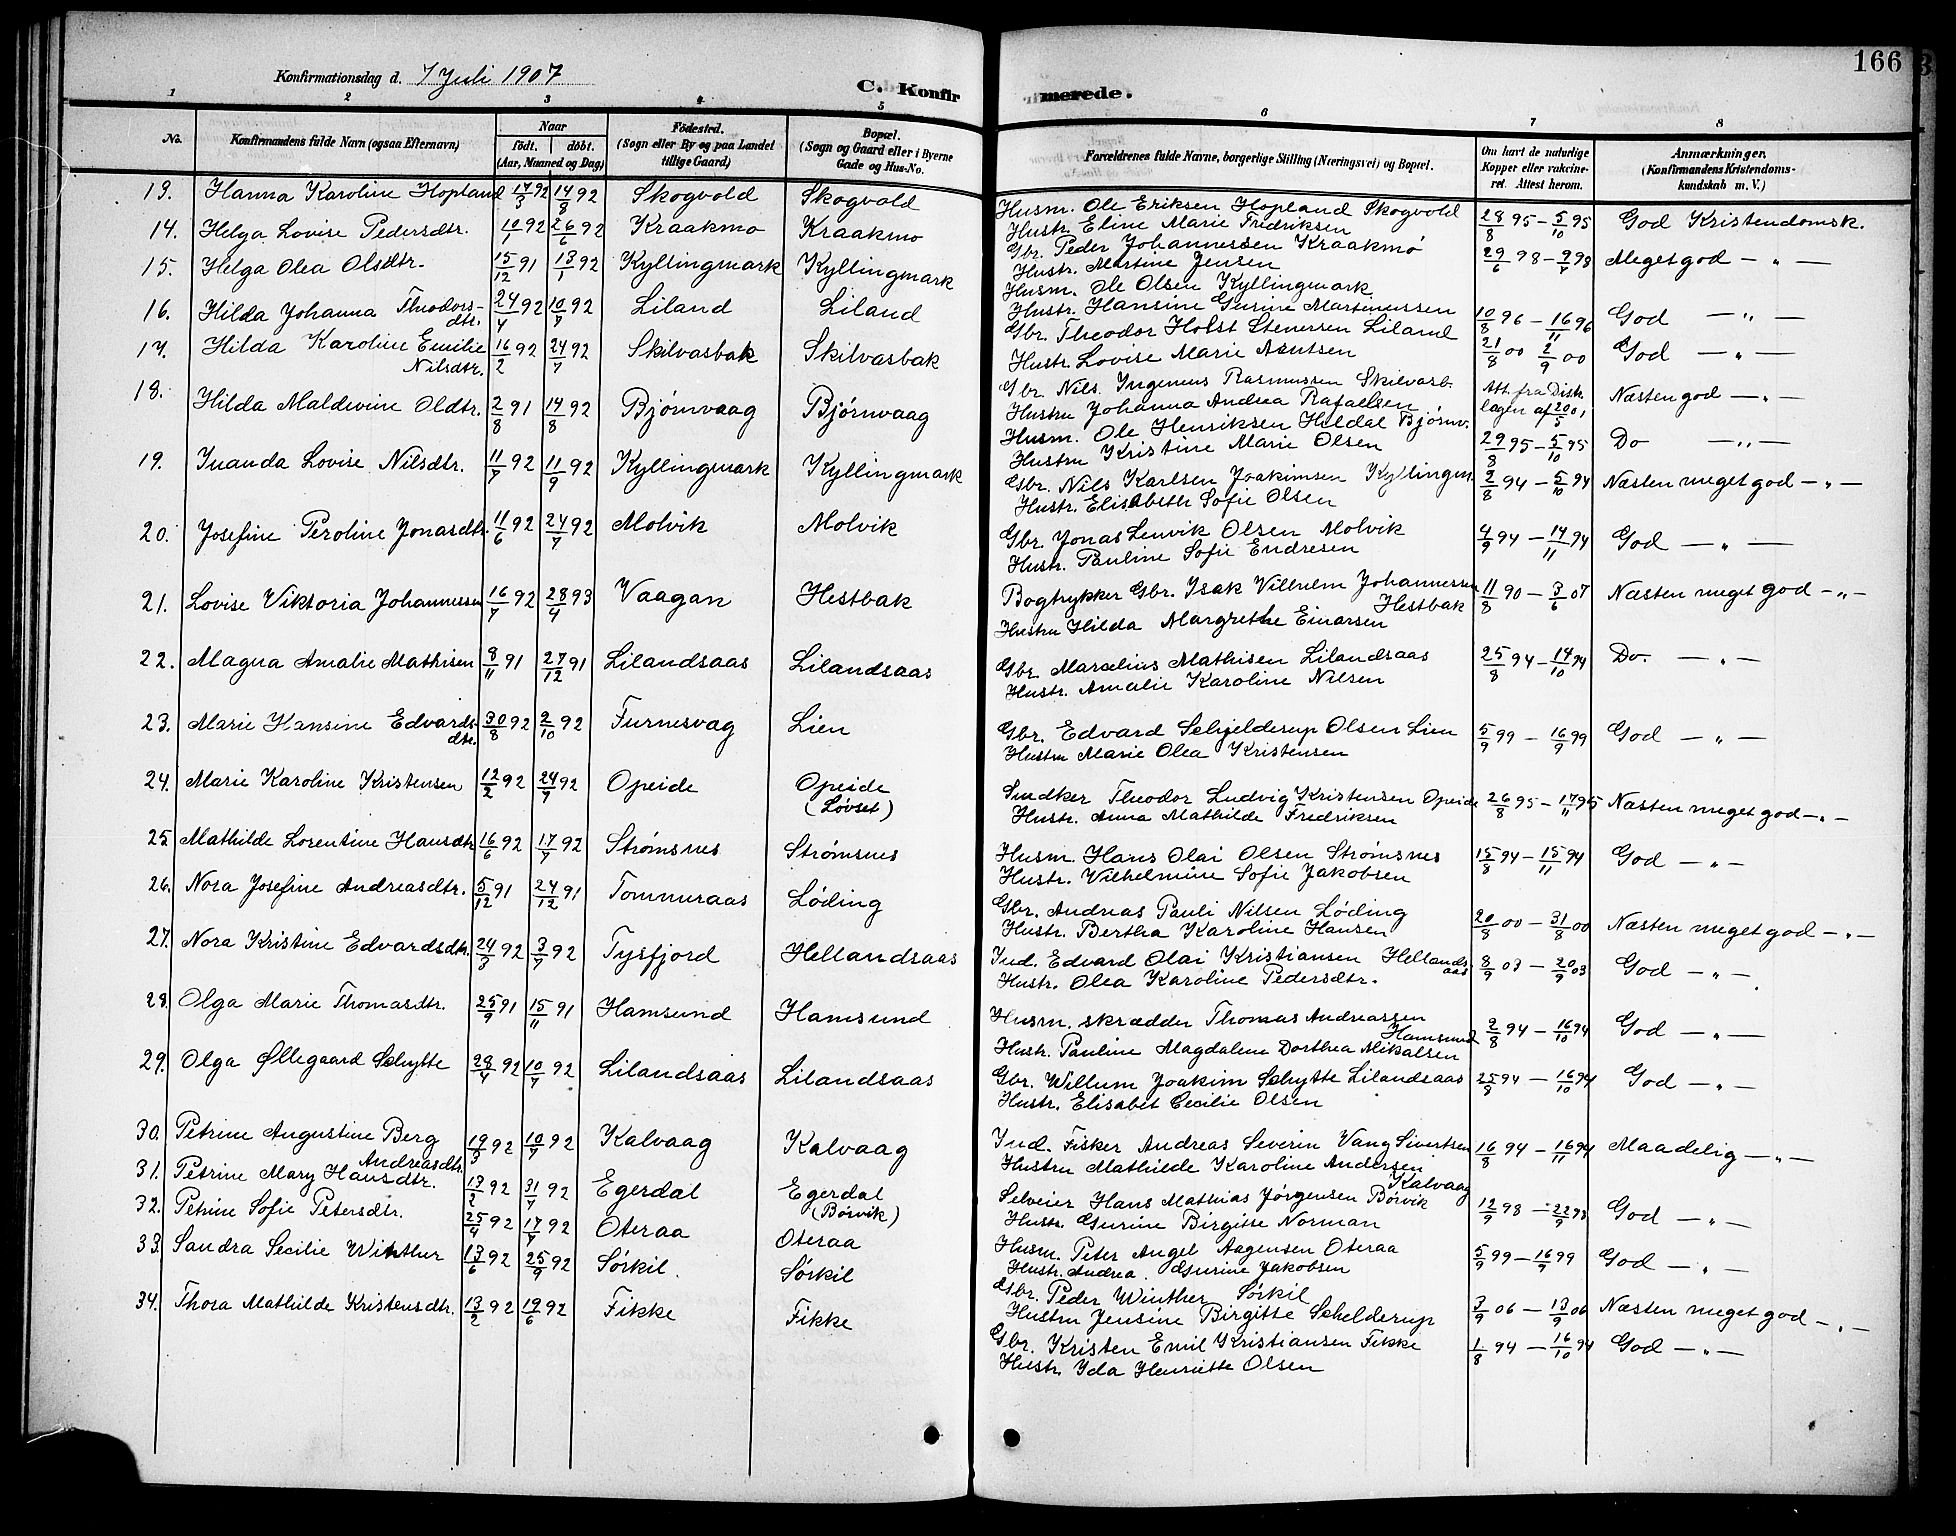 Konfirmationsdag d. 7 Juli 1907
C. Konfirmerede.
166
1 2 3 4 5 6 7 8
No. Konfirmandens fulde Navn (ogsaa Efternavn) Naar født. døbt. (Aar, Maaned og Dag) Fødested. (Sogn eller By og paa Landet tillige Gaard) Bopæl. (Sogn og Gaard eller i Byerne Gade og Hus-No.
Forældrenes fulde Navne, borgerlige Stilling (Næringsvei) og Bopæl. Om havt de naturlige Kopper eller vakcineret. Attest herom. Anmærkninger. (Konfirmandens Kristendomskundskab m. V.)
13. Hanna Karoline Hopland 17/3 92 14/8 92 Skogvold Skogvold
Husm. Ole Eriksen Hopland Skogvold
Hustr. Eline Marie Fredriksen 28/8 95 – 5/10 95 God Kristendomsk.
14. Helga Lovise Pedersdtr. 10/1 92 26/6 92 Kraakmo Kraakmo
Gbr. Peder Johannessen Kraakmo
Hustr. Martine Jensen 29/6 98 – 9/7 98 Meget god – „ –
15. Helga Olea Olsdtr. 15/12 91 13/1 92 Kyllingmark Kyllingmark
Husm. Ole Olsen Kyllingmark
Hustr. Hansine Gurine Martinussen 10/8 96 – 16/11 96 God – „ –
16. Hilda Johanna Theodorsdtr. 24/4 92 10/7 92 Liland Liland
Gbr. Theodor Holst Stenersen Liland
Hustr. Lovise Marie 21/8 00 2/9 00 God – „ –
17. Hilda Karoline Emilie Nilsdtr. 16/2 92 24/7 92 Skilvasbak Skilvasbak
Gbr. Nils Ingenius Rasmussen Skilvasb.
Hustru Johanna Andrea Rafaelsen Att. fra Distr. lægen af 20/5 Næsten god – „ –
18. Hilda Maldevine Oldtr. 2/8 91 14/8 92 Bjørnvaag Bjørnvaag
Husm. Ole Henriksen Heldal Bjørnv.
Hustru Kristine Marie Olsen 29/8 95 – 5/10 95 Do – „ –
19. Inanda Lovise Nilsdtr. 11/7 92 11/9 92 Kyllingmark Kyllingmark
Gbr. Nils Karlsen Joakimsen Kyllingm.
Hustr. Elisabeth Sofie Olsen 2/8 94 – 5/10 94 Næsten meget god – „ –
20. Josefine Peroline Jonasdtr. 11/6 92 24/7 92 Molvik Molvik
Gbr. Jonas Lenvik Olsen Molvik
Hustr. Pauline Sofie Endresen 4/9 94 – 14/11 94 God – „ –
21. Lovise Viktoria Johannessen 16/7 92 28/4 93 Vaagan Hestbak
Bogtrykker Gbr. Isak Vilhelm Johannessen Hestbak
Hustru Hilda Margrethe Einarsen 11/8 90 – 3/6 07 Næsten meget god – „ –
22. Magna Amalie Mathisen 8/11 91 27/12 91 Lilandsaas Lilandsaas
Gbr. Marcelius Mathisen Lilandsaas
Hustr. Amalie Karoline Nilsen 25/8 94 – 14/10 94 Do. – „ –
23. Marie Hansine Edvardsdtr. 30/8 92 2/10 92 Furnesvag Lien
Gbr. Edvard Schjelderup Olsen Lien
Hustru Marie Olea Kristensen 5/9 99 – 16/9 99 God – „ –
24. Marie Karoline Kristensen 12/2 92 24/7 92 Opeide Opeide (Løvset)
Snedker Theodor Ludvig Kristensen Opeide
Hustr. Anna Mathilde Fredriksen 26/8 95 – 17/11 95 Næsten meget god – „ –
25. Mathilde Lorentine Hansdtr. 16/6 92 17/7 92 Strømsnes Strømsnes
Husm. Hans Olai Olsen Strømsnes
Hustr. Wilhelmine Sofie Jakobsen 15/8 94 – 15/11 94 God – „ –
26. Nora Josefine Andreasdtr. 5/12 91 24/12 91 Tommeraas Løding
Gbr. Andreas Pauli Nilsen Løding
Hustr. Bertha Karoline Hansen 20/8 00 – 31/8 00 Næsten meget god – „ –
27. Nora Kristine Edvardsdtr. 24/8 92 3/7 92 Tysfjord Hellandsaas
Ind. Edvard Olai Kristiansen Hellandsaas
Hustr. Olea Karoline Pedersdtr. 8/9 03 – 20/9 03 God – „ –
28. Olga Marie Thomasdtr. 25/9 91 15/11 91 Hamsund Hamsund
Husm. skrædder Thomas Andreassen Hamsund
Hustr. Pauline Magdalene Dorthea Mikalsen 2/8 94 – 16/10 94 God – „ –
29. Olga Øllegaard Schytte 28/4 92 10/7 92 Lilandsaas Lilandsaas
Gbr. Willum Joakim Schytte Lilandsaas
Hustr. Elisabet Cecilie Olsen 25/8 94 – 16/10 94 God – „ –
30. Petrine Augustine Berg Andreasdtr. 19/3 92 10/7 92 Kalvaag Kalvaag
Ind. Fisker Andreas Severin Vang Sivertsen
Hustru Mathilde Karoline Andersen Kalvaag 16/8 94 – 16/11 94 Maadelig – „ –
31. Petrine Mary Hansdtr. 13/2 92 31/7 92 Egerdal Egerdal (Børvik)
Selveier Hans Mathias Jørgensen Børvik
Hustr. Gurine Birgitte Norman 12/9 98 – 22/9 98 God – „ –
32. Petrine Sofie Petersdtr. 25/4 92 17/7 92 Oteraa Oteraa
Husm. Peter Angel Aagensen Oteraa
Hustr. Andrea Gurine Jakobsen 5/9 99 – 16/9 99 God – „ –
33. Sandra Secilie Winther 13/6 92 25/9 92 Sørkil Sørkil
Gbr. Peder Winther Sørkil
Hustru Jensine Birgitte Schelderup 3/9 06 – 13/9 06 Næsten meget god – „ –
34. Thora Mathilde Kristensdtr. 13/2 92 19/6 92 Fikke Fikke
Gbr. Kristen Emil Kristiansen Fikke
Hustr. Ida Henriette Olsen 1/8 94 – 16/10 94 God – „ –